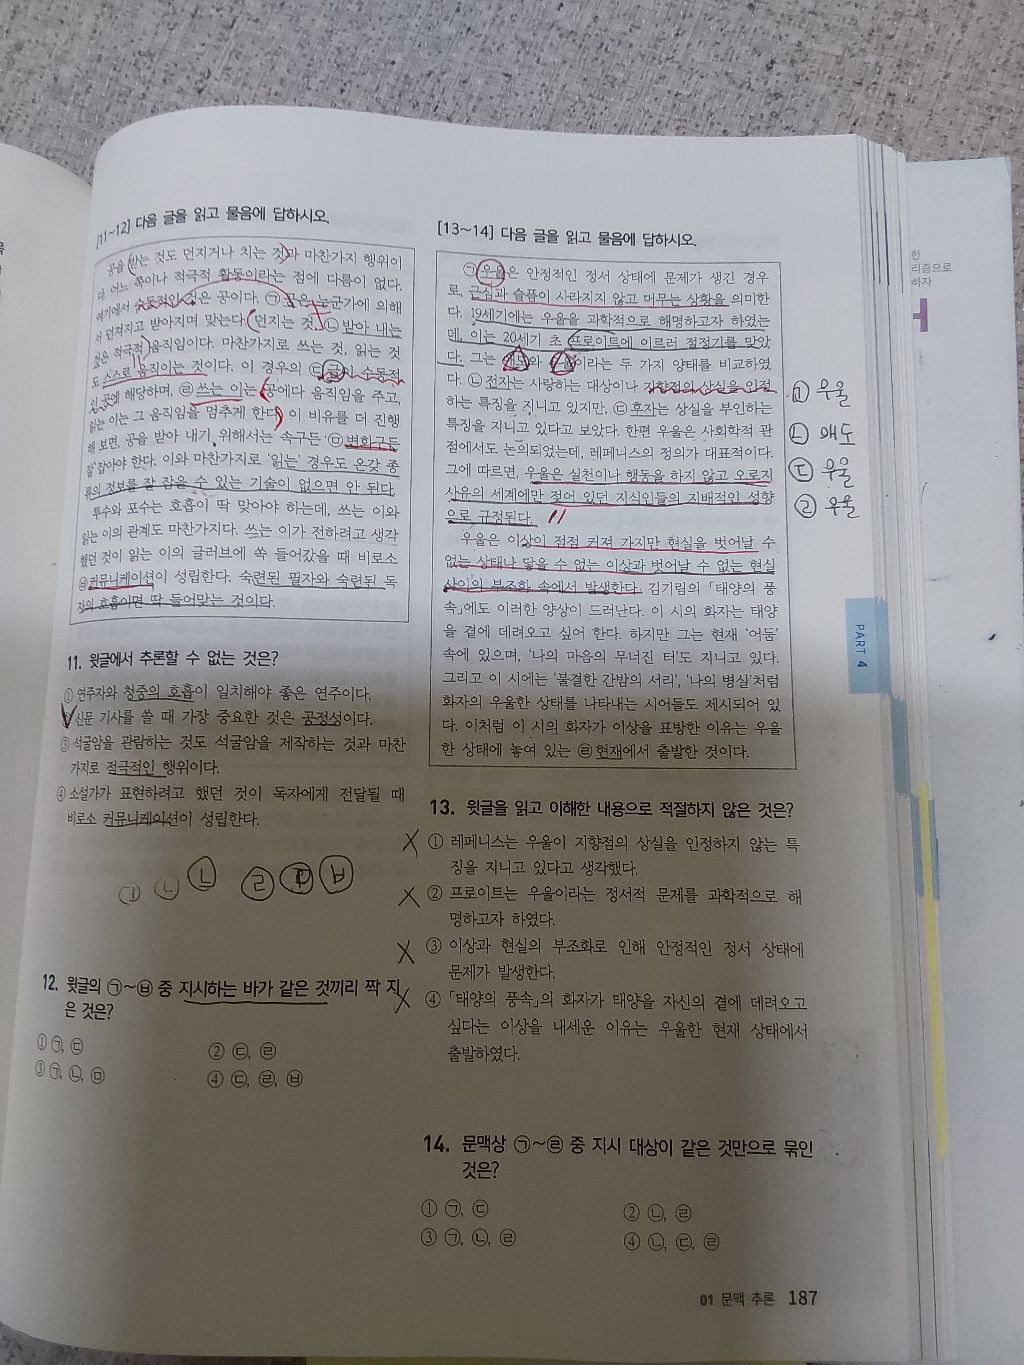 [11~12] 다음 글을 읽고 물음에 답하시오.
공을 받는 것도 던지거나 치는 것과 마찬가지 행위이
다. 어느 쪽이나 적극적 활동이라는 점에 다름이 없다.
여기에서 수동적인 것은 공이다. ㉠ 공은 누군가에 의해
서 던져지고 받아지며 맞는다. 던지는 것, ㉡ 받아 내는
것은 적극적 움직임이다. 마찬가지로 쓰는 것, 읽는 것
도 스스로 움직이는 것이다. 이 경우의 ㉢ 글이 수동적
인 공에 해당하며, ㉣ 쓰는 이는 공에다 움직임을 주고,
읽는 이는 그 움직임을 멈추게 한다. 이 비유를 더 진행
해 보면, 공을 받아 내기 위해서는 속구든 ㉤ 변화구든
잘 잡아야 한다. 이와 마찬가지로 '읽는' 경우도 온갖 종
류의 정보를 잘 잡을 수 있는 기술이 없으면 안 된다.
투수와 포수는 호흡이 딱 맞아야 하는데, 쓰는 이와
읽는 이의 관계도 마찬가지다. 쓰는 이가 전하려고 생각
했던 것이 읽는 이의 글러브에 쏙 들어갔을 때 비로소
㉥ 커뮤니케이션이 성립한다. 숙련된 필자와 숙련된 독
자의 호흡이면 딱 들어맞는 것이다.
11. 윗글에서 추론할 수 없는 것은?
① 연주자와 청중의 호흡이 일치해야 좋은 연주이다.
신문 기사를 쓸 때 가장 중요한 것은 공정성이다.
③ 석굴암을 관람하는 것도 석굴암을 제작하는 것과 마찬
가지로 적극적인 행위이다.
④ 소설가가 표현하려고 했던 것이 독자에게 전달될 때
비로소 커뮤니케이션이 성립한다.
㉠ ㉡ ㉡ ㉣ ㉥
12. 윗글의 ㉠~㉥ 중 지시하는 바가 같은 것끼리 짝 지
은 것은?
① ㉠, ㉢
② ㉢, ㉣
③ ㉠, ㉡, ㉤
④ ㉢, ㉣, ㉥
[13~14] 다음 글을 읽고 물음에 답하시오.
㉠ 우울은 안정적인 정서 상태에 문제가 생긴 경우
로, 근심과 슬픔이 사라지지 않고 머무는 상황을 의미한
다. 19세기에는 우울을 과학적으로 해명하고자 하였는
데, 이는 20세기 초 프로이트에 이르러 절정기를 맞았
다. 그는 애도와 우울이라는 두 가지 양태를 비교하였
다. ㉡ 전자는 사랑하는 대상이나 지향점의 상실을 인정
하는 특징을 지니고 있지만, ㉢ 후자는 상실을 부인하는
특징을 지니고 있다고 보았다. 한편 우울은 사회학적 관
점에서도 논의되었는데, 레페니스의 정의가 대표적이다.
그에 따르면, 우울은 실천이나 행동을 하지 않고 오로지
사유의 세계에만 젖어 있던 지식인들의 지배적인 성향
으로 규정된다.
우울은 이상이 점점 커져 가지만 현실을 벗어날 수
없는 상태나 닿을 수 없는 이상과 벗어날 수 없는 현실
사이의 부조화 속에서 발생한다. 김기림의 「태양의 풍
속」에도 이러한 양상이 드러난다. 이 시의 화자는 태양
을 곁에 데려오고 싶어 한다. 하지만 그는 현재 '어둠'
속에 있으며, '나의 마음의 무너진 터'도 지니고 있다.
그리고 이 시에는 '불결한 간밤의 서리', '나의 병실'처럼
화자의 우울한 상태를 나타내는 시어들도 제시되어 있
다. 이처럼 이 시의 화자가 이상을 표방한 이유는 우울
한 상태에 놓여 있는 ㉣ 현재에서 출발한 것이다.
㉠ 우울
㉡ 애도
㉢ 우울
㉣ 우울
13. 윗글을 읽고 이해한 내용으로 적절하지 않은 것은?
① 레페니스는 우울이 지향점의 상실을 인정하지 않는 특
징을 지니고 있다고 생각했다.
② 프로이트는 우울이라는 정서적 문제를 과학적으로 해
명하고자 하였다.
③ 이상과 현실의 부조화로 인해 안정적인 정서 상태에
문제가 발생한다.
④ 「태양의 풍속」의 화자가 태양을 자신의 곁에 데려오고
싶다는 이상을 내세운 이유는 우울한 현재 상태에서
출발하였다.
14. 문맥상 ㉠~㉣ 중 지시 대상이 같은 것만으로 묶인
것은?
① ㉠, ㉢
② ㉡, ㉣
③ ㉠, ㉡, ㉣
④ ㉡, ㉢, ㉣
01 문맥 추론 187
PART 4
한
리즘으로
하자